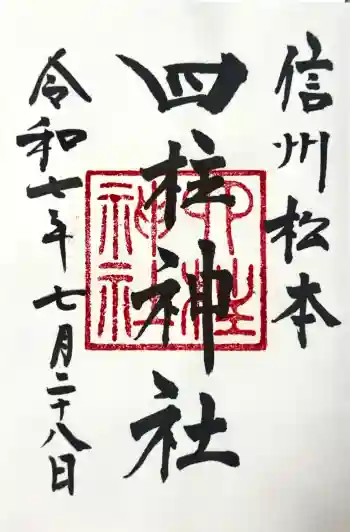 信州松本
四柱神社
四柱
神社
令和七年七月二十八日